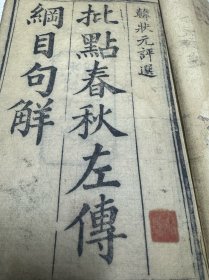 韓狀元評選
批點春秋左傳
綱目句觧